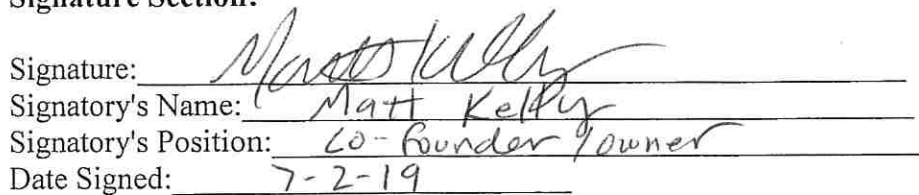 Signature Section:
Signature: Matt Kelly
Signatory's Name: Matt Kelly
Signatory's Position: Co-founder / owner
Date Signed: 7-2-19